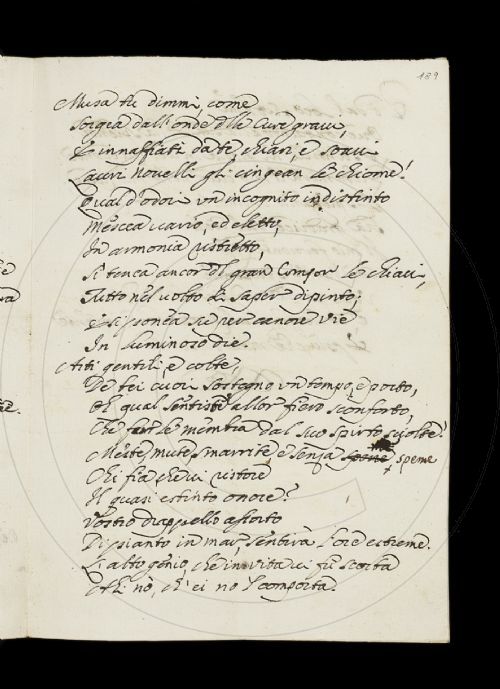 189
Musa tu dimmi, come
Sorgea dall'onde d'lle Cure gravi,
E innaffiati da te chiari, e soavi
Lauri novelli gli cingean le chiome!
Qual d'odoi un incognito indistinto
Mescea vario, ed eletto,
In armonia ristretto,
Si tenea ancor d'l gran Compor le chiavi,
Tutto nel volto di saper dipinto;
E si ponea su per canore vie
In luminoso die.
Arti gentili, e colte,
De bei cuori sostegno un tempo, e porto,
Oh qual sentiste allor fiero sconforto,
Che le membra dal suo spirto sciolte!
Meste, mute, smarrite, e senza speme
Chi fia che vi ristore
Il quasi estinto onore?
Vostro drappello assorto
Di pianto in mar, sentiva l'ore estreme.
L'alto genio, che in vita vi fu scorta
Ahi nò, ch'ei no'l comporta.
ie